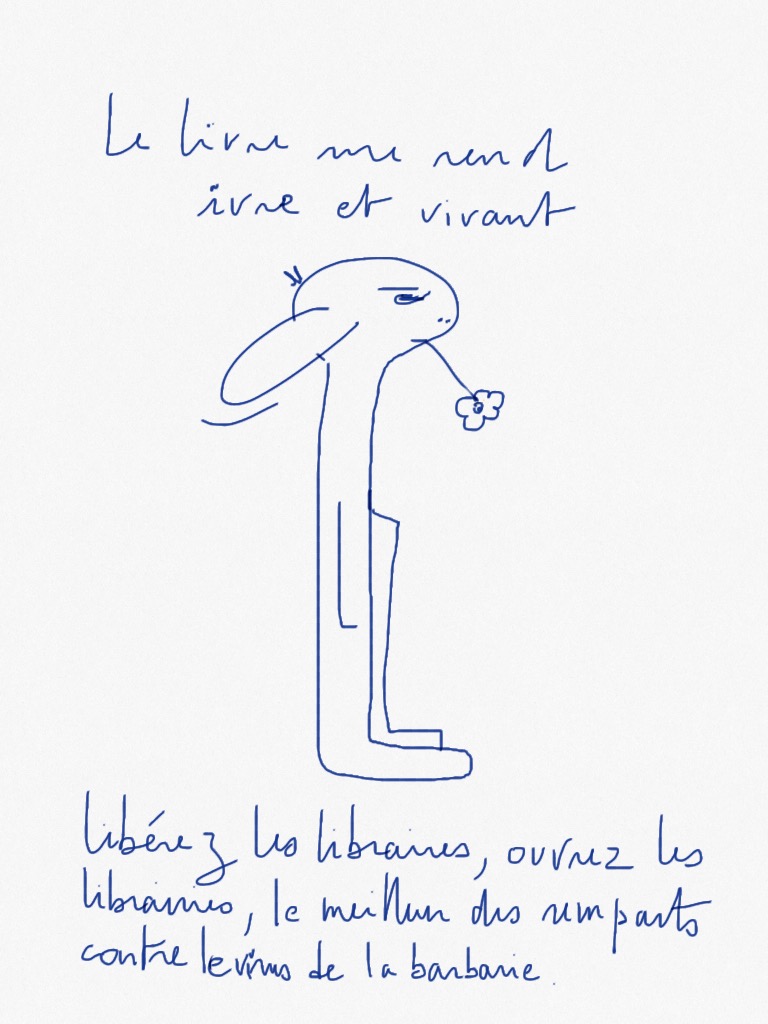 Le livre me rend
ivre et vivant
libérez les libraires, ouvrez les
librairies, le meilleur des remparts
contre le virus de la barbarie.